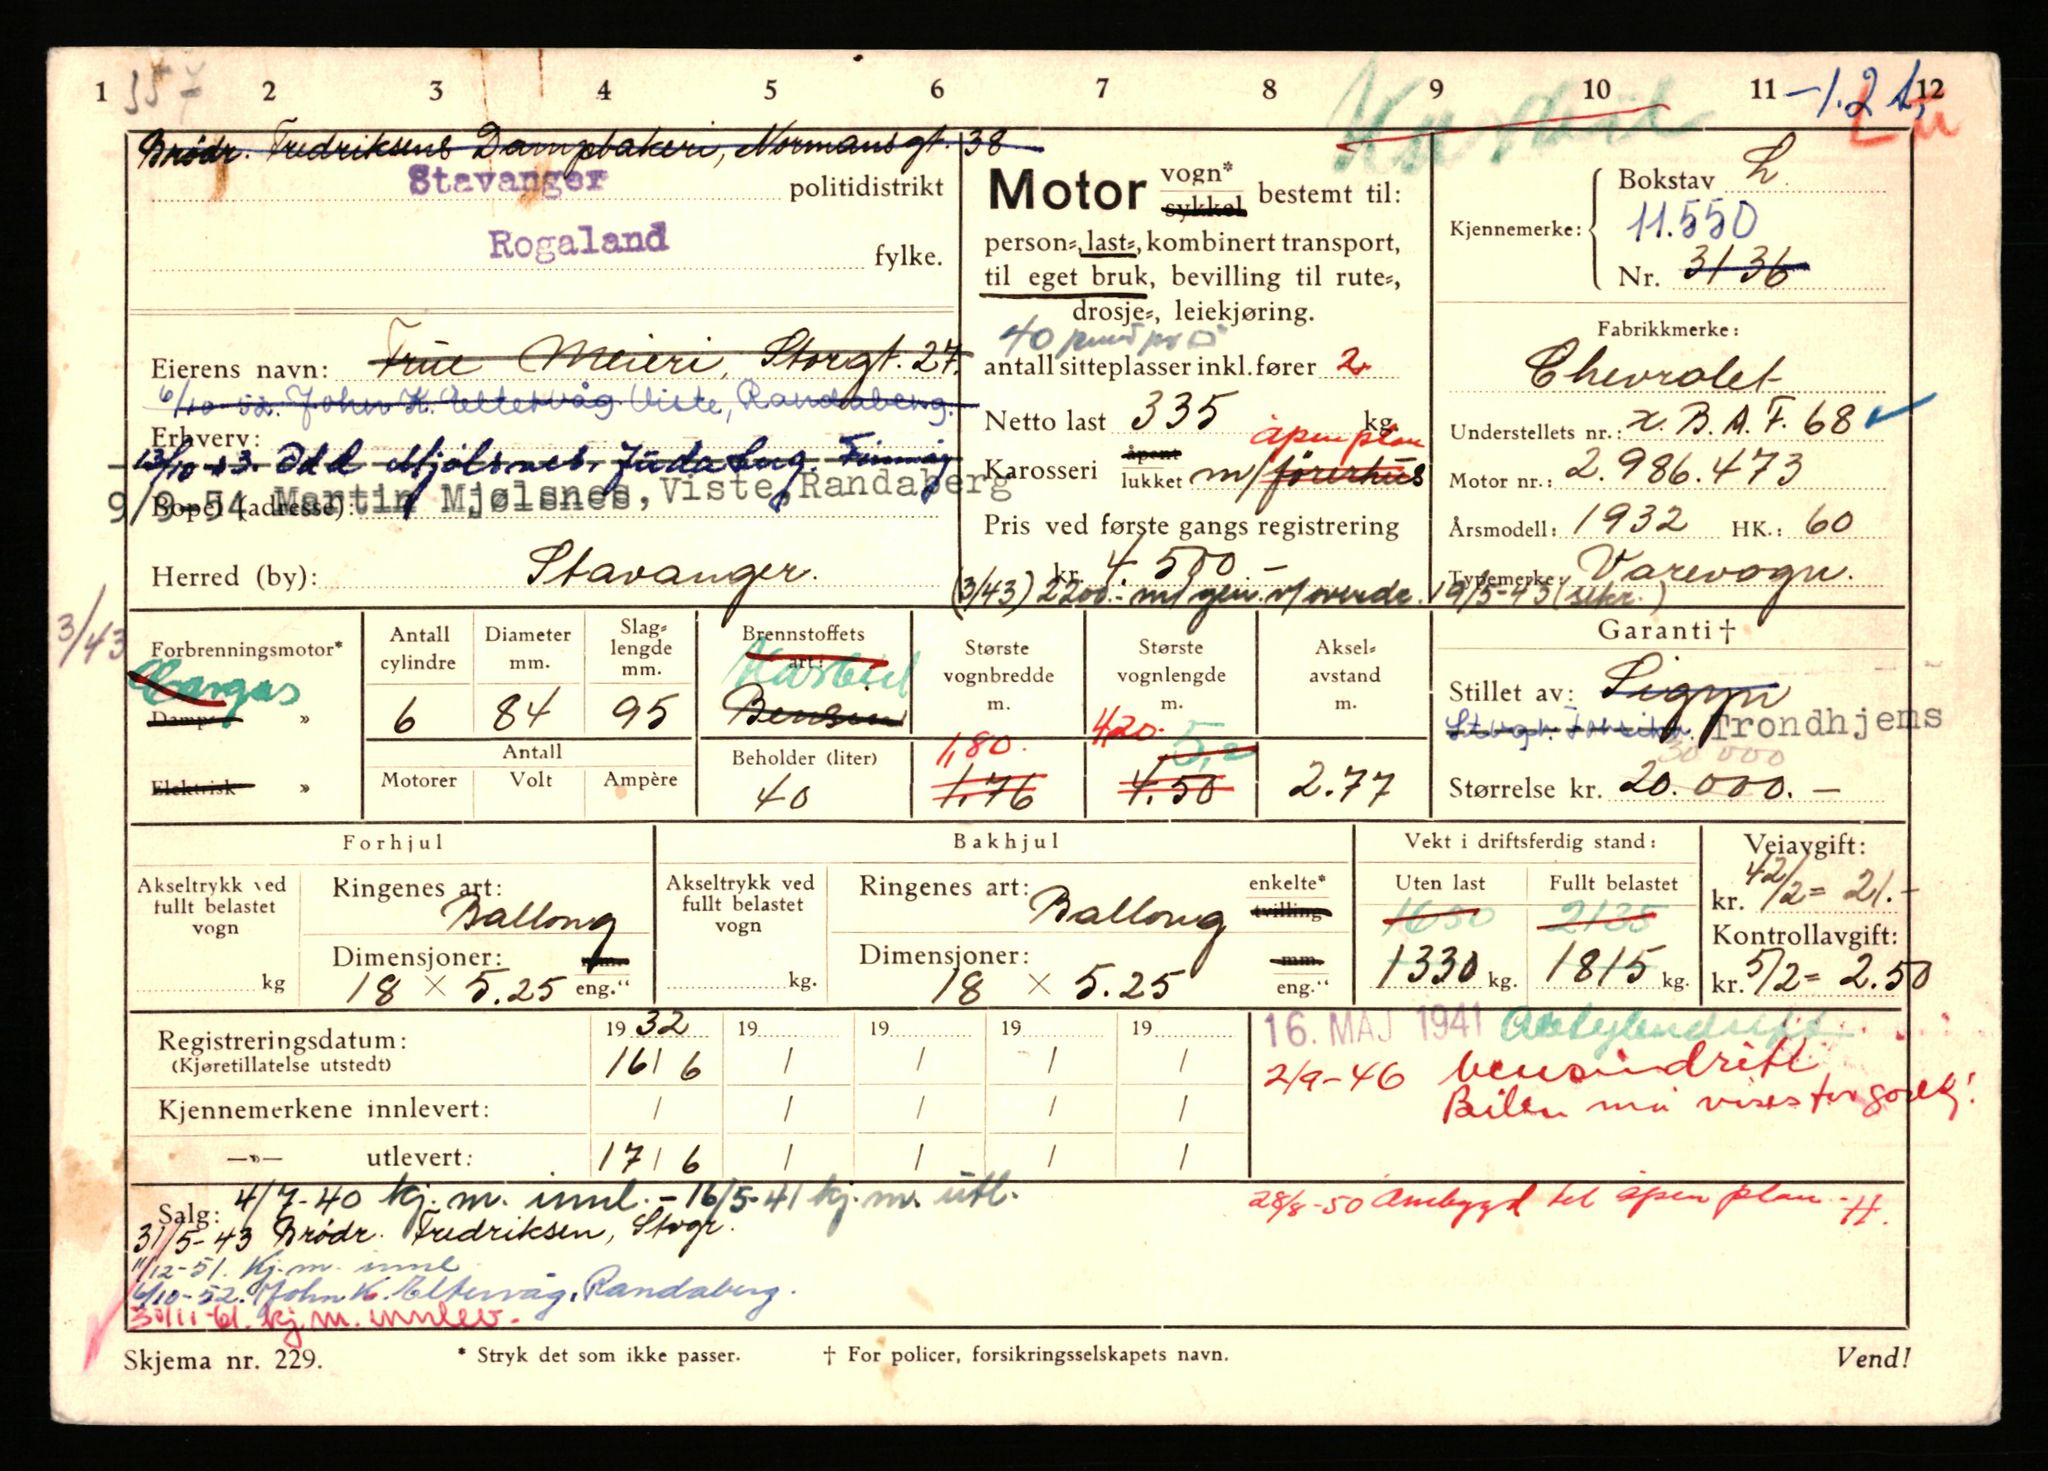 1 2 3 4 5 6 7 8 9 10 11 12
357
-1.2 t,
Brödr. Fredriksens Dampbakeri, Normansgt. 38
Stavanger politidistrikt
Rogaland fylke.
Eierens navn: Frue Meieri, Storgt. 27.
6/10-52. John K. Eltervåg Viste, Randaberg.
Erhverv:
13/10-53. Odd Mjølsnes,
9/9-54 Martin Mjølsnes, Viste, Randaberg
Bopel (adresse):
Herred (by): Stavanger.
Motor vogn* sykkel bestemt til:
person-, last-, kombinert transport,
til eget bruk, bevilling til rute-,
drosje-, leiekjøring.
antall sitteplasser inkl. fører 2
Netto last 335 kg
åpen plan
Karosseri åpent lukket m/førerhus
Pris ved første gangs registrering
kr. 4.500.-
(3/43) 2200.- m/gen. 19/5-43
Kjennemerke: Bokstav L.
11.550
Nr. 3136
Fabrikkmerke:
Chevrolet
Understellets nr.: x. B. A. F. 68
Motor nr.: 2.986.473
Årsmodell: 1932 HK.: 60
Typemerke: Varevogn.
3/43
Forbrenningsmotor*
Damp- »
Elektrisk »
Antall cylindre
6
Diameter mm.
84
Slag-lengde mm.
95
Antall
Motorer Volt Ampère
Brennstoffets art:
Karbid
Bensin
Beholder (liter)
40
Største vognbredde m.
1,80.
1.76
Største vognlengde m.
4,20.
5,2
4.50
Aksel-avstand m.
2.77
Garanti †
Stillet av: Sigyn
Trondhjems
30 000
Størrelse kr. 20.000.-
Forhjul
Akseltrykk ved fullt belastet vogn
kg
Ringenes art:
Ballong
Dimensjoner: mm.
18 × 5.25 eng."
Bakhjul
Akseltrykk ved fullt belastet vogn
kg.
Ringenes art: enkelte*
Ballong tvilling
Dimensjoner: mm.
18 × 5.25 eng."
Vekt i driftsferdig stand:
Uten last Fullt belastet
1650 2135
1330 kg. 1815 kg.
Veiavgift:
kr. 42/2 = 21.-
Kontrollavgift:
kr. 5/2 = 2.50
Registreringsdatum: 19 32 19 19 19 19
(Kjøretillatelse utstedt) 16/6 / / / /
Kjennemerkene innlevert: / / / / /
—»— utlevert: 17/6 / / / /
16. MAJ 1941 Acetylendrift
2/9-46 bensindrift
Bilen må vises
28/8-50 Ombygd til åpen plan - H.
4/7-40 kj. m. innl. - 16/5-41 kj. m. utl.
Salg:
31/5-43 Brödr. Fredriksen, Stvgr.
11/12-51. Kj. m. innl.
6/10-52. John K. Eltervåg, Randaberg.
30/11-61. kj. m. innlev.
Skjema nr. 229. * Stryk det som ikke passer. † For policer, forsikringsselskapets navn. Vend!